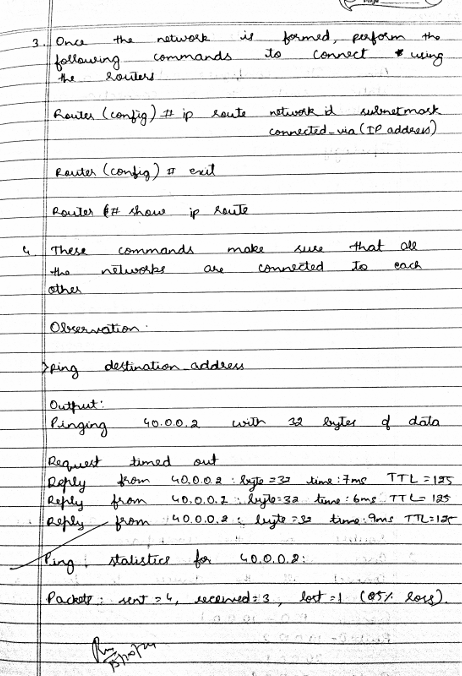 3. Once the network is formed, perform the
following commands to connect using
the routers
Router (config) # ip route network id subnetmask
connected_via (IP address)
Router (config) # exit
Router # show ip route
4. These commands make sure that all
the networks are connected to each
other
Observation
>ping destination_address
Output:
Pinging 40.0.0.2 with 32 bytes of data
Request timed out
Reply from 40.0.0.2 : byte=32 time:7ms TTL=125
Reply from 40.0.0.2 : byte=32 time:6ms TTL=125
Reply from 40.0.0.2 : byte=32 time:9ms TTL=125
Ping statistics for 40.0.0.2:
Packets: sent = 4, received = 3, lost = 1 (25% loss).